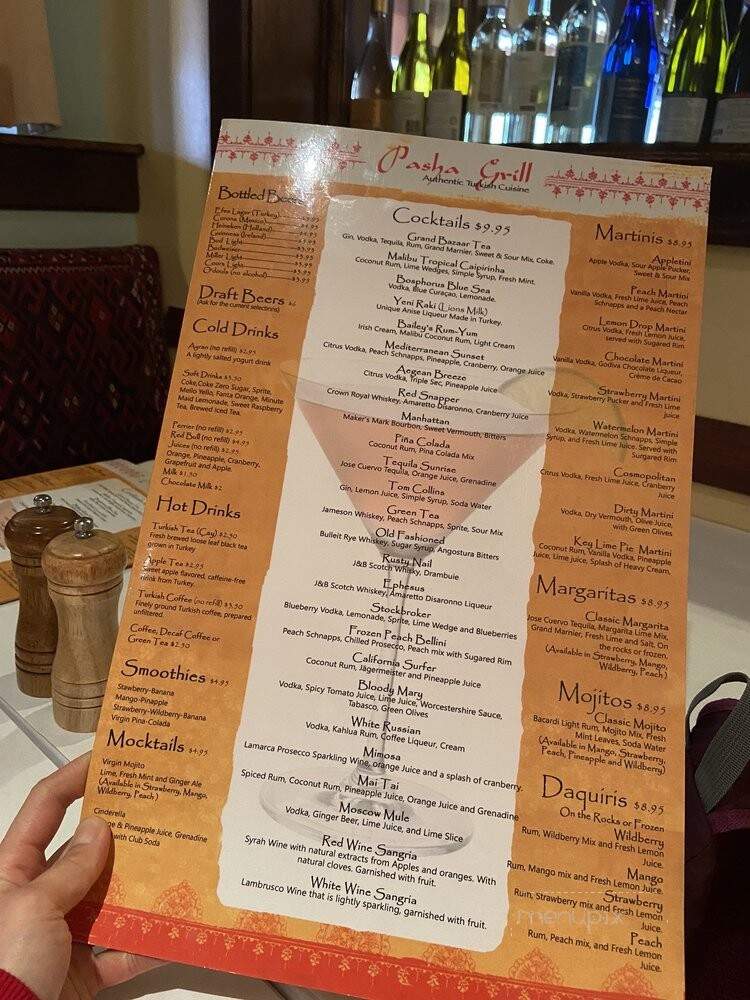 Pasha Grill
Authentic Turkish Cuisine
Bottled Beers
Efes Lager (Turkey)
Corona (Mexico)
Heineken (Holland)
Guinness (Ireland)
Bud Light
Budweiser
Miller Light
Coors Light
O'douls (no alcohol) $5.95
Draft Beers $6
(Ask for the current selections)
Cold Drinks
Ayran (no refill) $2.95
A lightly salted yogurt drink
Soft Drinks $3.50
Coke, Coke Zero Sugar, Sprite,
Mello Yello, Fanta Orange, Minute
Maid Lemonade, Sweet Raspberry
Tea, Brewed Iced Tea.
Perrier (no refill) $2.95
Red Bull (no refill) $4.95
Juices (no refill) $2.95
Orange, Pineapple, Cranberry,
Grapefruit and Apple.
Milk $1.50
Chocolate Milk $2
Hot Drinks
Turkish Tea (Cay) $2.50
Fresh brewed loose leaf black tea
grown in Turkey
Apple Tea $2.95
Sweet apple flavored, caffeine-free
drink from Turkey.
Turkish Coffee (no refill) $3.50
Finely ground Turkish coffee, prepared
unfiltered.
Coffee, Decaf Coffee or
Green Tea $2.50
Smoothies $4.95
Stawberry-Banana
Mango-Pinapple
Strawberry-Wildberry-Banana
Virgin Pina-Colada
Mocktails $4.95
Virgin Mojito
Lime, Fresh Mint and Ginger Ale
(Available in Strawberry, Mango,
Wildberry, Peach )
Cinderella
& Pineapple Juice, Grenadine
with Club Soda
Cocktails $9.95
Grand Bazaar Tea
Gin, Vodka, Tequila, Rum, Grand Marnier, Sweet & Sour Mix, Coke.
Malibu Tropical Caipirinha
Coconut Rum, Lime Wedges, Simple Syrup, Fresh Mint.
Bosphorus Blue Sea
Vodka, Blue Curaçao, Lemonade.
Yeni Raki (Lions Milk)
Unique Anise Liqueur Made in Turkey.
Bailey's Rum-Yum
Irish Cream, Malibu Coconut Rum, Light Cream
Mediterranean Sunset
Citrus Vodka, Peach Schnapps, Pineapple, Cranberry, Orange Juice
Aegean Breeze
Citrus Vodka, Triple Sec, Pineapple Juice
Red Snapper
Crown Royal Whiskey, Amaretto Disaronno, Cranberry Juice
Manhattan
Maker's Mark Bourbon, Sweet Vermouth, Bitters
Piña Colada
Coconut Rum, Pina Colada Mix
Tequila Sunrise
Jose Cuervo Tequila, Orange Juice, Grenadine
Tom Collins
Gin, Lemon Juice, Simple Syrup, Soda Water
Green Tea
Jameson Whiskey, Peach Schnapps, Sprite, Sour Mix
Old Fashioned
Bulleit Rye Whiskey, Sugar Syrup, Angostura Bitters
Rusty Nail
J&B Scotch Whisky, Drambuie
Ephesus
J&B Scotch Whiskey, Amaretto Disaronno Liqueur
Stockbroker
Blueberry Vodka, Lemonade, Sprite, Lime Wedge and Blueberries
Frozen Peach Bellini
Peach Schnapps, Chilled Prosecco, Peach mix with Sugared Rim
California Surfer
Coconut Rum, Jägermeister and Pineapple Juice
Bloody Mary
Vodka, Spicy Tomato Juice, Lime Juice, Worcestershire Sauce,
Tabasco, Green Olives
White Russian
Vodka, Kahlua Rum, Coffee Liqueur, Cream
Mimosa
Lamarca Prosecco Sparkling Wine, orange Juice and a splash of cranberry.
Mai Tai
Spiced Rum, Coconut Rum, Pineapple Juice, Orange Juice and Grenadine
Moscow Mule
Vodka, Ginger Beer, Lime Juice, and Lime Slice
Red Wine Sangria
Syrah Wine with natural extracts from Apples and oranges. With
natural cloves. Garnished with fruit.
White Wine Sangria
Lambrusco Wine that is lightly sparkling, garnished with fruit.
Martinis $8.95
Appletini
Apple Vodka, Sour Apple Pucker,
Sweet & Sour Mix
Peach Martini
Vanilla Vodka, Fresh Lime Juice, Peach
Schnapps and a Peach Nectar
Lemon Drop Martini
Citrus Vodka, Fresh Lemon Juice,
served with Sugared Rim
Chocolate Martini
Vanilla Vodka, Godiva Chocolate Liqueur,
Crème de Cacao
Strawberry Martini
Vodka, Strawberry Pucker and Fresh Lime
juice
Watermelon Martini
Vodka, Watermelon Schnapps, Simple
Syrup, and Fresh Lime Juice. Served with
Surgared Rim
Cosmopolitan
Citrus Vodka, Fresh Lime Juice, Cranberry
Juice
Dirty Martini
Vodka, Dry Vermouth, Olive Juice,
with Green Olives
Key Lime Pie Martini
Coconut Rum, Vanilla Vodka, Pineapple
Juice, Lime juice, Splash of Heavy Cream,
Margaritas $8.95
Classic Margarita
Jose Cuervo Tequila, Margarita Lime Mix,
Grand Marnier, Fresh Lime and Salt. On
the rocks or frozen.
(Available in Strawberry, Mango,
Wildberry, Peach )
Mojitos $8.95
Classic Mojito
Bacardi Light Rum, Mojito Mix, Fresh
Mint Leaves, Soda Water
(Available in Mango, Strawberry,
Peach, Pineapple and Wildberry)
Daquiris $8.95
On the Rocks or Frozen
Wildberry
Rum, Wildberry Mix and Fresh Lemon
Juice.
Mango
Rum, Mango mix and Fresh Lemon Juice.
Strawberry
Rum, Strawberry mix and Fresh Lemon
Juice.
Peach
Rum, Peach mix, and Fresh Lemon
Juice.
menupix